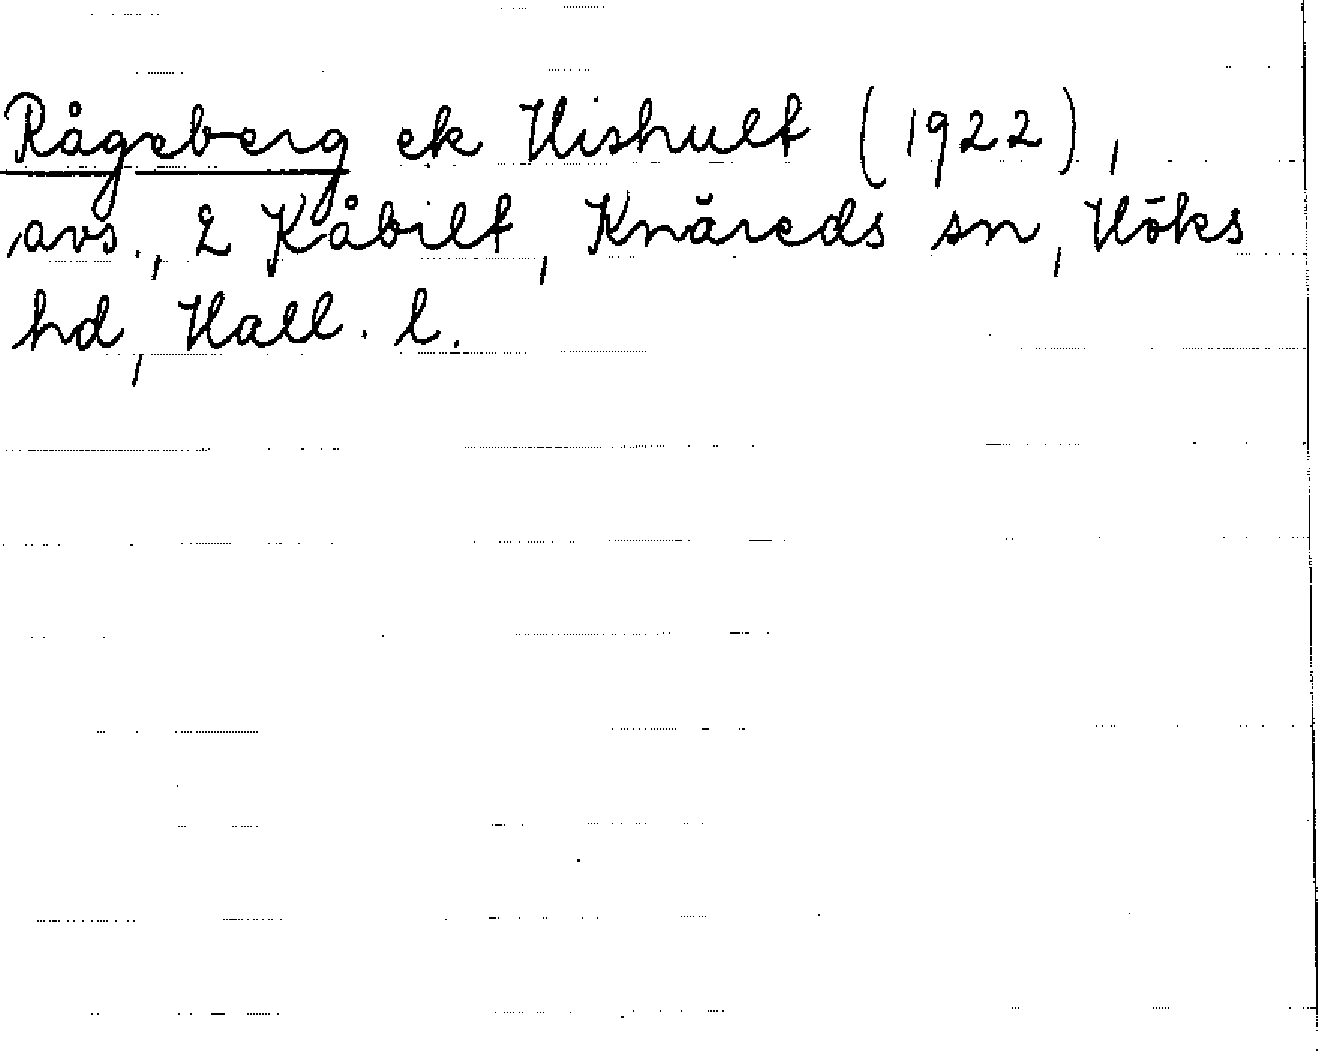 Rågeberg ek Hishult (1922),
avs., 2 Kåbilt, Knäreds sn, Höks
hd, Hall. l.